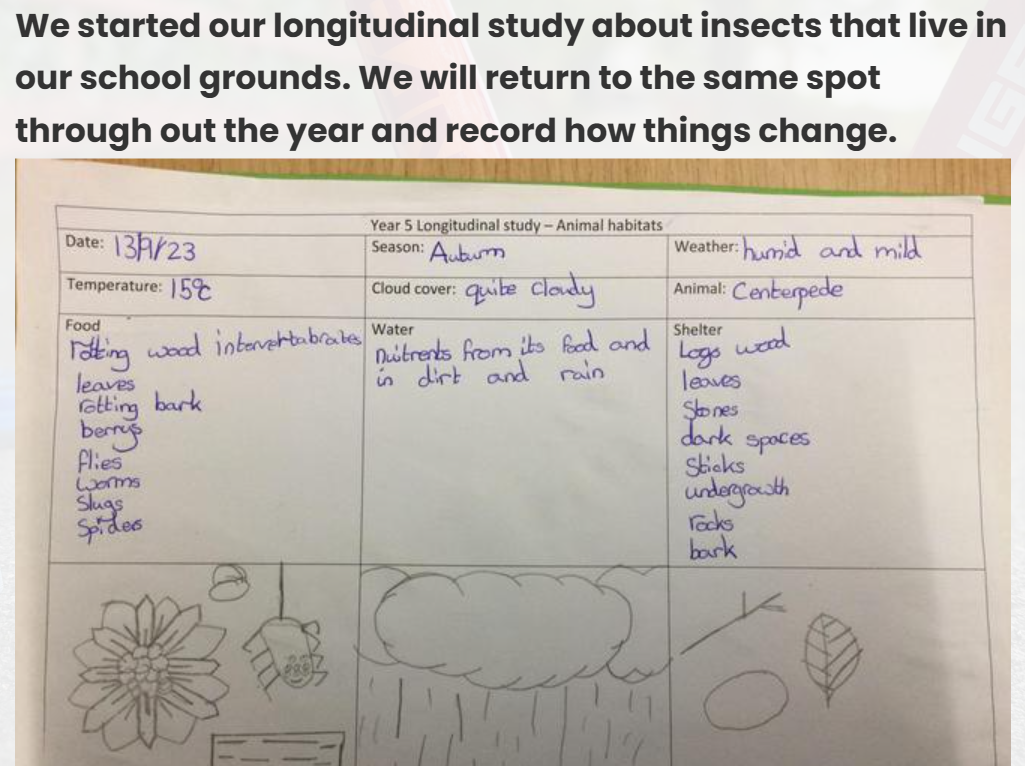 We started our longitudinal study about insects that live in
our school grounds. We will return to the same spot
through out the year and record how things change.
Year 5 Longitudinal study – Animal habitats
Date: 13/9/23
Season: Autum
Weather: humid and mild
Temperature: 15°c
Cloud cover: quite cloudy
Animal: Centerpede
Food
rotting wood intervertabrates
leaves
rotting bark
berrys
flies
worms
Slugs
Spides
Water
nuitrents from its food and
in dirt and rain
Shelter
Logs wood
leaves
Stones
dark spaces
Sticks
undergrowth
rocks
bark